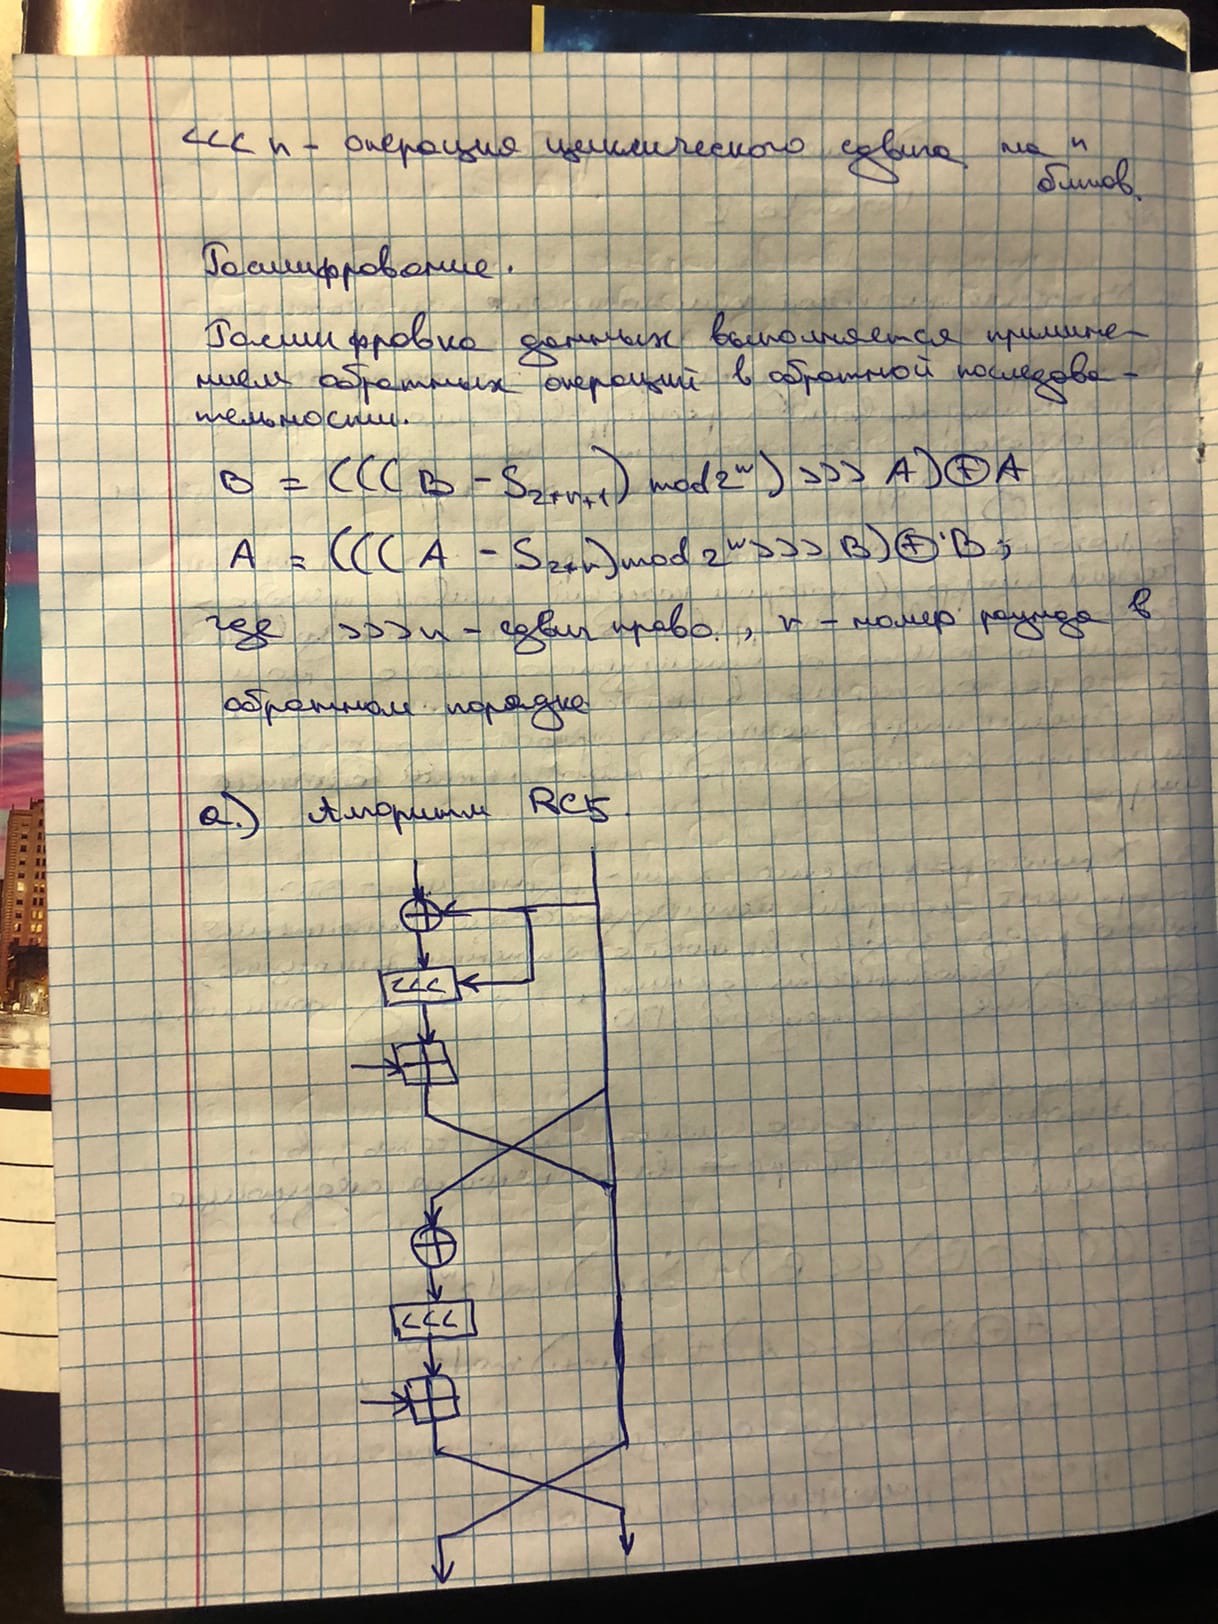 <<< n - операция циклического сдвига на n
битов.
Расшифрование.
Расшифровка данных выполняется примене-
нием обратных операций в обратной последова-
тельности.
B = (((B - S₂₊ₙ₊₁) mod 2ʷ) >>> A) ⊕ A
A = (((A - S₂₊ₙ) mod 2ʷ >>> B) ⊕ B;
где >>> n - сдвиг право, n - номер раунда в
обратном порядке
а.) Алгоритм RC5.
<<<
<<<